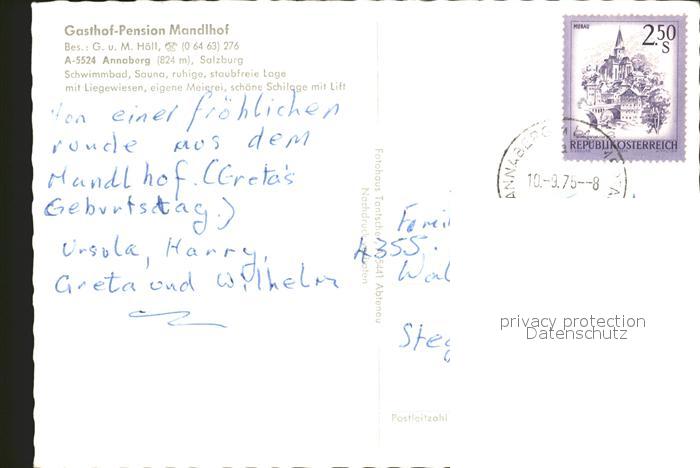 Gasthof-Pension Mandlhof
Bes.: G. u. M. Höll, ☎ (0 64 63) 276
A-5524 Annaberg (824 m), Salzburg
Schwimmbad, Sauna, ruhige, staubfreie Lage
mit Liegewiesen, eigene Meierei, schöne Schilage mit Lift
Von einer fröhlichen
runde aus dem
Mandlhof. (Greta's
Geburtstag.)
Ursula, Harry,
Greta und Wilhelm
Fotohaus Tantscher, 5441 Abtenau
Nachdruck verboten
MURAU
2.50 S
REPUBLIK ÖSTERREICH
ANNABERG
10.-9.75--8
Fami
4355.
Wal
Steg
Postleitzahl
privacy protection
Datenschutz